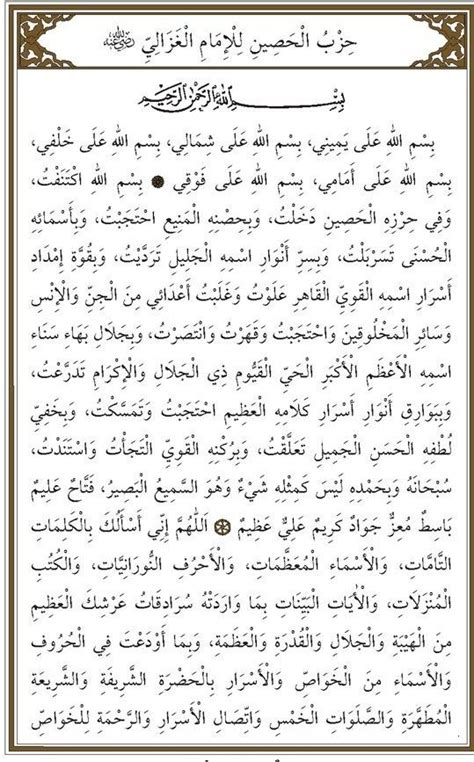 حِزْبُ الْحَصِينِ لِلْإِمَامِ الْغَزَالِيِّ رَضِيَ اللهُ عَنْهُ
بِسْمِ اللهِ الرَّحْمٰنِ الرَّحِيمِ
بِسْمِ اللهِ عَلَى يَمِينِي، بِسْمِ اللهِ عَلَى شَمَالِي، بِسْمِ اللهِ عَلَى خَلْفِي،
بِسْمِ اللهِ عَلَى أَمَامِي، بِسْمِ اللهِ عَلَى فَوْقِي ۞ بِسْمِ اللهِ اكْتَنَفْتُ،
وَفِي حِرْزِهِ الْحَصِينِ دَخَلْتُ، وَبِحِصْنِهِ الْمَنِيعِ احْتَجَبْتُ، وَبِأَسْمَائِهِ
الْحُسْنَى تَسَرْبَلْتُ، وَبِسِرِّ أَنْوَارِ اسْمِهِ الْجَلِيلِ تَرَدَّيْتُ، وَبِقُوَّةِ إِمْدَادِ
أَسْرَارِ اسْمِهِ الْقَوِيِّ الْقَاهِرِ عَلَوْتُ وَغَلَبْتُ أَعْدَائِي مِنَ الْجِنِّ وَالْإِنْسِ
وَسَائِرِ الْمَخْلُوقِينَ وَاحْتَجَبْتُ وَقَهَرْتُ وَانْتَصَرْتُ، وَبِجَلَالِ بَهَاءِ سَنَاءِ
اسْمِهِ الْأَعْظَمِ الْأَكْبَرِ الْحَيِّ الْقَيُّومِ ذِي الْجَلَالِ وَالْإِكْرَامِ تَدَرَّعْتُ،
وَبِبَوَارِقِ أَنْوَارِ أَسْرَارِ كَلَامِهِ الْعَظِيمِ احْتَجَبْتُ وَتَمَسَّكْتُ، وَبِخَفِيِّ
لُطْفِهِ الْحَسَنِ الْجَمِيلِ تَعَلَّقْتُ، وَبِرُكْنِهِ الْقَوِيِّ الْتَجَأْتُ وَاسْتَنَدْتُ،
سُبْحَانَهُ وَبِحَمْدِهِ لَيْسَ كَمِثْلِهِ شَيْءٌ وَهُوَ السَّمِيعُ الْبَصِيرُ، فَتَّاحٌ عَلِيمٌ
بَاسِطٌ مُعِزٌّ جَوَادٌ كَرِيمٌ عَلِيٌّ عَظِيمٌ ۞ اَللّٰهُمَّ إِنِّي أَسْأَلُكَ بِالْكَلِمَاتِ
التَّامَّاتِ، وَالْأَسْمَاءِ الْمُعَظَّمَاتِ، وَالْأَحْرُفِ النُّورَانِيَّاتِ، وَالْكُتُبِ
الْمُنْزَلَاتِ، وَالْأٰيَاتِ الْبَيِّنَاتِ بِمَا وَارَدَتْهُ سُرَادِقَاتُ عَرْشِكَ الْعَظِيمِ
مِنَ الْهَيْبَةِ وَالْجَلَالِ وَالْقُدْرَةِ وَالْعَظَمَةِ، وَبِمَا أَوْدَعْتَ فِي الْحُرُوفِ
وَالْأَسْمَاءِ مِنَ الْخَوَاصِّ وَالْأَسْرَارِ بِالْحَضْرَةِ الشَّرِيفَةِ وَالشَّرِيعَةِ
الْمُطَهَّرَةِ وَالصَّلَوَاتِ الْخَمْسِ وَاتِّصَالِ الْأَسْرَارِ وَالرَّحْمَةِ لِلْخَوَاصِّ